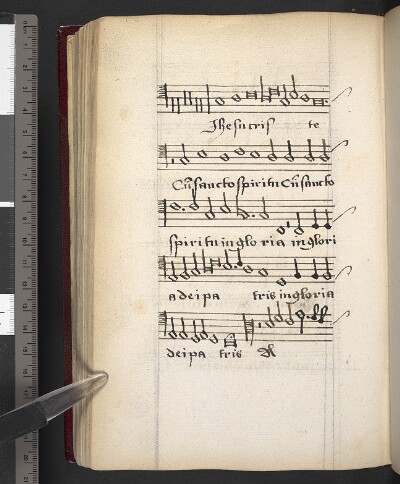 Jhesu cris te
Cū sancto spiritu Cū sancto
spiritu in glo ria in glori
a dei pa tris in gloria
dei pa tris A